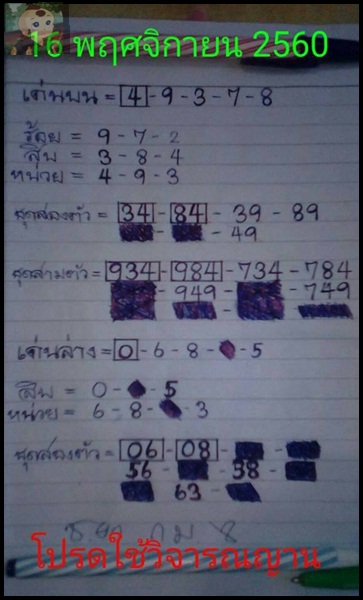 16 พฤศจิกายน 2560
เด่นบน = 4 - 9 - 3 - 7 - 8
ร้อย = 9 - 7 - 2
สิบ = 3 - 8 - 4
หน่วย = 4 - 9 - 3
ชุดสองตัว = 34 - 84 - 39 - 89
- 49
ชุดสามตัว = 934 - 984 - 734 - 784
- 949 - - 749
เด่นล่าง = 0 - 6 - 8 - - 5
สิบ = 0 - - 5
หน่วย = 6 - 8 - - 3
ชุดสองตัว = 06 - 08 - -
56 - - 58 -
- 63 -
โปรดใช้วิจารณญาน